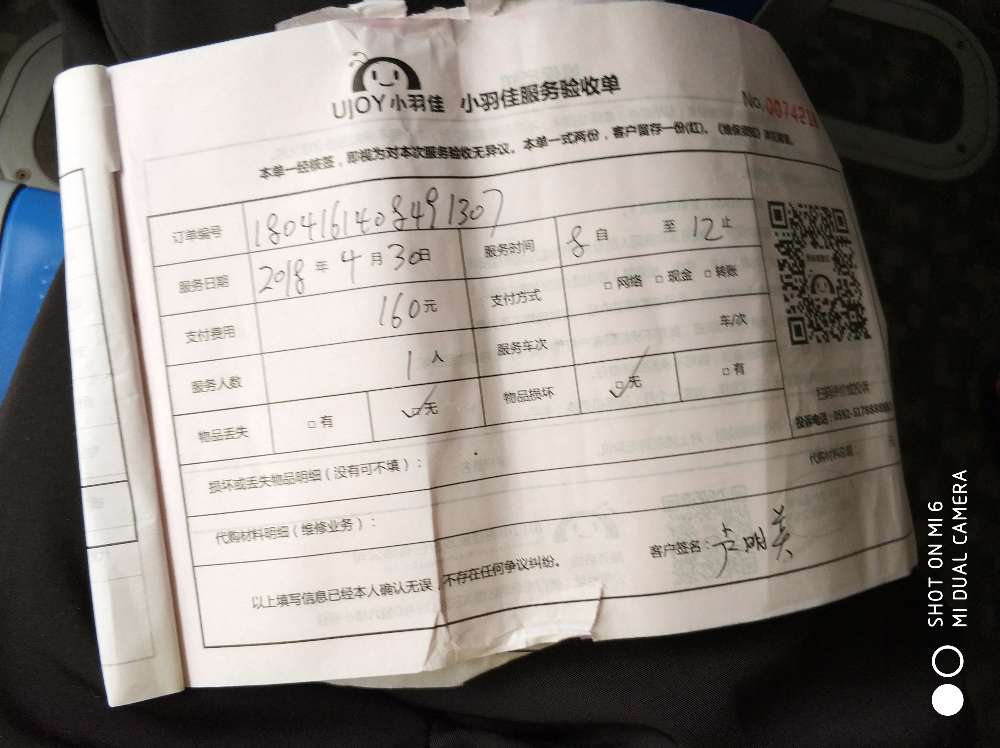 UJOY 小羽佳 小羽佳服务验收单
No.
本单一经核签，即视为对本次服务验收无异议。本单一式两份，客户留存一份(红)。
订单编号 1804161408491307
服务日期 2018 年 4 月 30 日 服务时间 8 自 至 12 止
支付费用 160 元 支付方式 □ 网络 □ 现金 □ 转账
服务人数 1 人 服务车次 车/次
物品丢失 □ 有 ☑ 无 物品损坏 ☑ 无 □ 有
损坏或丢失物品明细（没有可不填）：
代购材料明细（维修业务）： 代购材料总额： 元
以上填写信息已经本人确认无误，不存在任何争议纠纷。 客户签名：
SHOT ON MI 6
MI DUAL CAMERA